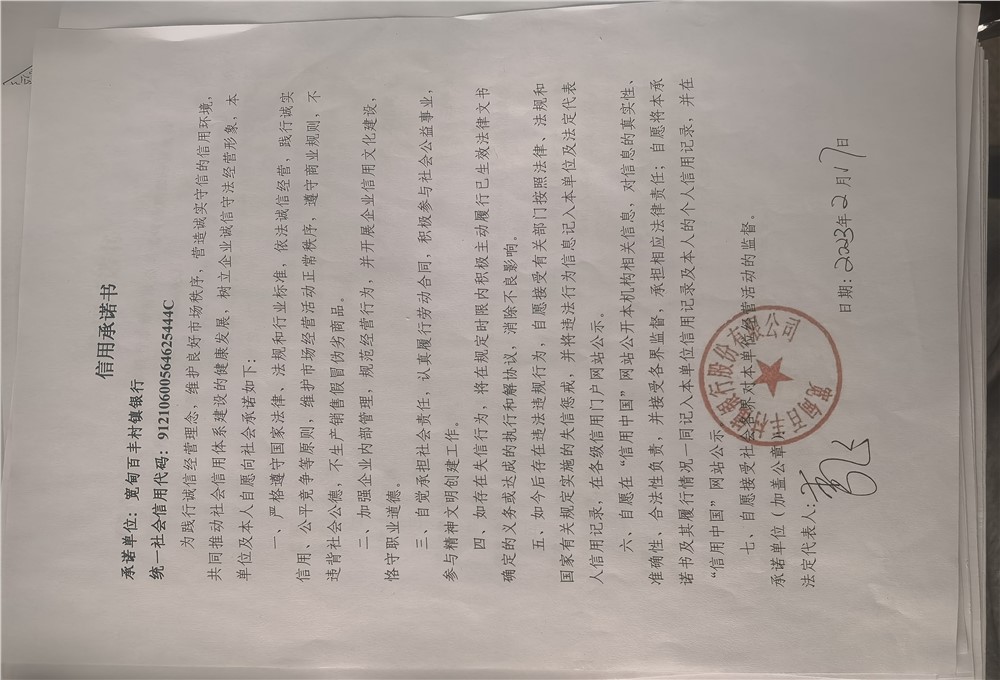 信用承诺书
承诺单位：宽甸百丰村镇银行
统一社会信用代码：91210600564625444C
为践行诚信经营理念，维护良好市场秩序，营造诚实守信的信用环境，
共同推动社会信用体系建设的健康发展，树立企业诚信守法经营形象，本
单位及本人自愿向社会承诺如下：
一、严格遵守国家法律、法规和行业标准，依法诚信经营，践行诚实
信用、公平竞争等原则，维护市场经营活动正常秩序，遵守商业规则，不
违背社会公德，不生产销售假冒伪劣商品。
二、加强企业内部管理，规范经营行为，并开展企业信用文化建设，
恪守职业道德。
三、自觉承担社会责任，认真履行劳动合同，积极参与社会公益事业，
参与精神文明创建工作。
四、如存在失信行为，将在规定时限内积极主动履行已生效法律文书
确定的义务或达成的执行和解协议，消除不良影响。
五、如今后存在违法违规行为，自愿接受有关部门按照法律、法规和
国家有关规定实施的失信惩戒，并将违法行为信息记入本单位及法定代表
人信用记录，在各级信用门户网站公示。
六、自愿在“信用中国”网站公开本机构相关信息，对信息的真实性、
准确性、合法性负责，并接受各界监督，承担相应法律责任；自愿将本承
诺书及其履行情况一同记入本单位信用记录及本人的个人信用记录，并在
“信用中国”网站公示。
七、自愿接受社会各界对本单位经营活动的监督。
承诺单位（加盖公章）：
法定代表人：
日期：2023年2月17日